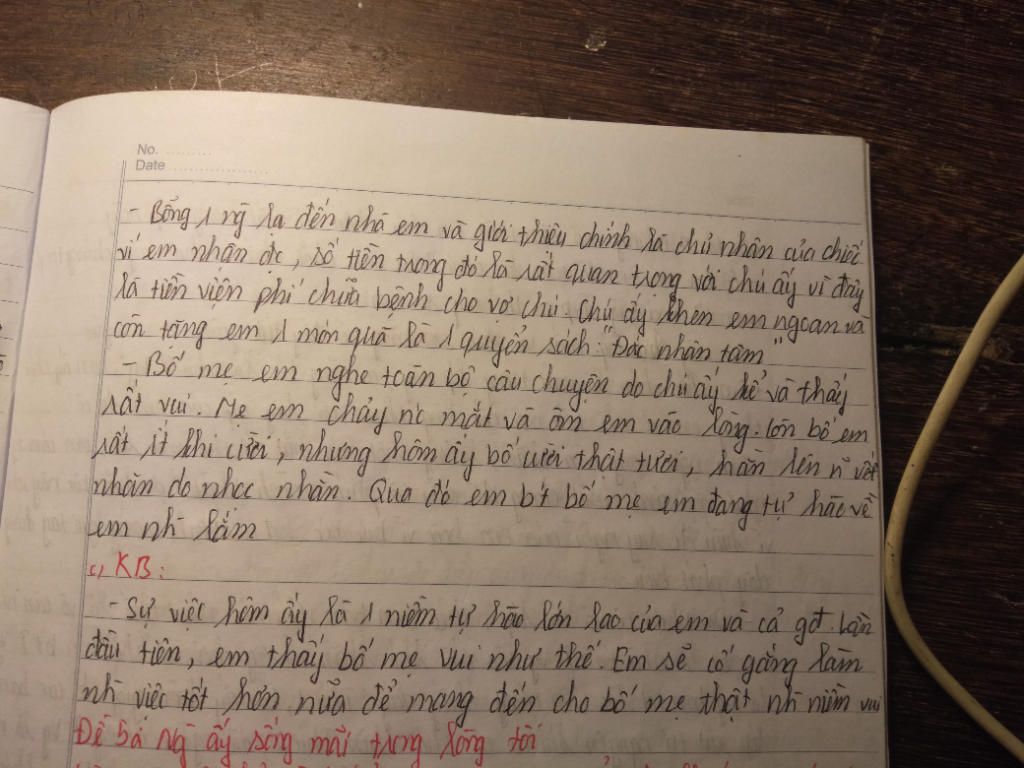 No. ..........
Date ....................
- Bỗng 1 ng lạ đến nhà em và giới thiệu chính là chủ nhân của chiếc
ví em nhận đc, số tiền trong đó là rất quan trọng với chú ấy vì đây
là tiền viện phí chữa bệnh cho vợ chú. Chú ấy khen em ngoan và
còn tặng em 1 món quà là 1 quyển sách: "Đắc nhân tâm"
- Bố mẹ em nghe toàn bộ câu chuyện do chú ấy kể và thấy
rất vui. Mẹ em chảy nc mắt và ôm em vào lòng. Còn bố em
rất ít khi cười, nhưng hôm ấy bố cười thật tươi, hằn lên n~ vết
nhăn do nhọc nhằn. Qua đó em bt bố mẹ em đang tự hào về
em nh~ lắm
c, KB:
- Sự việc hôm ấy là 1 niềm tự hào lớn lao của em và cả gđ. Lần
đầu tiên, em thấy bố mẹ vui như thế. Em sẽ cố gắng làm
nh~ việc tốt hơn nữa để mang đến cho bố mẹ thật nh~ niềm vui
Đề 5: Ng ấy sống mãi trong lòng tôi